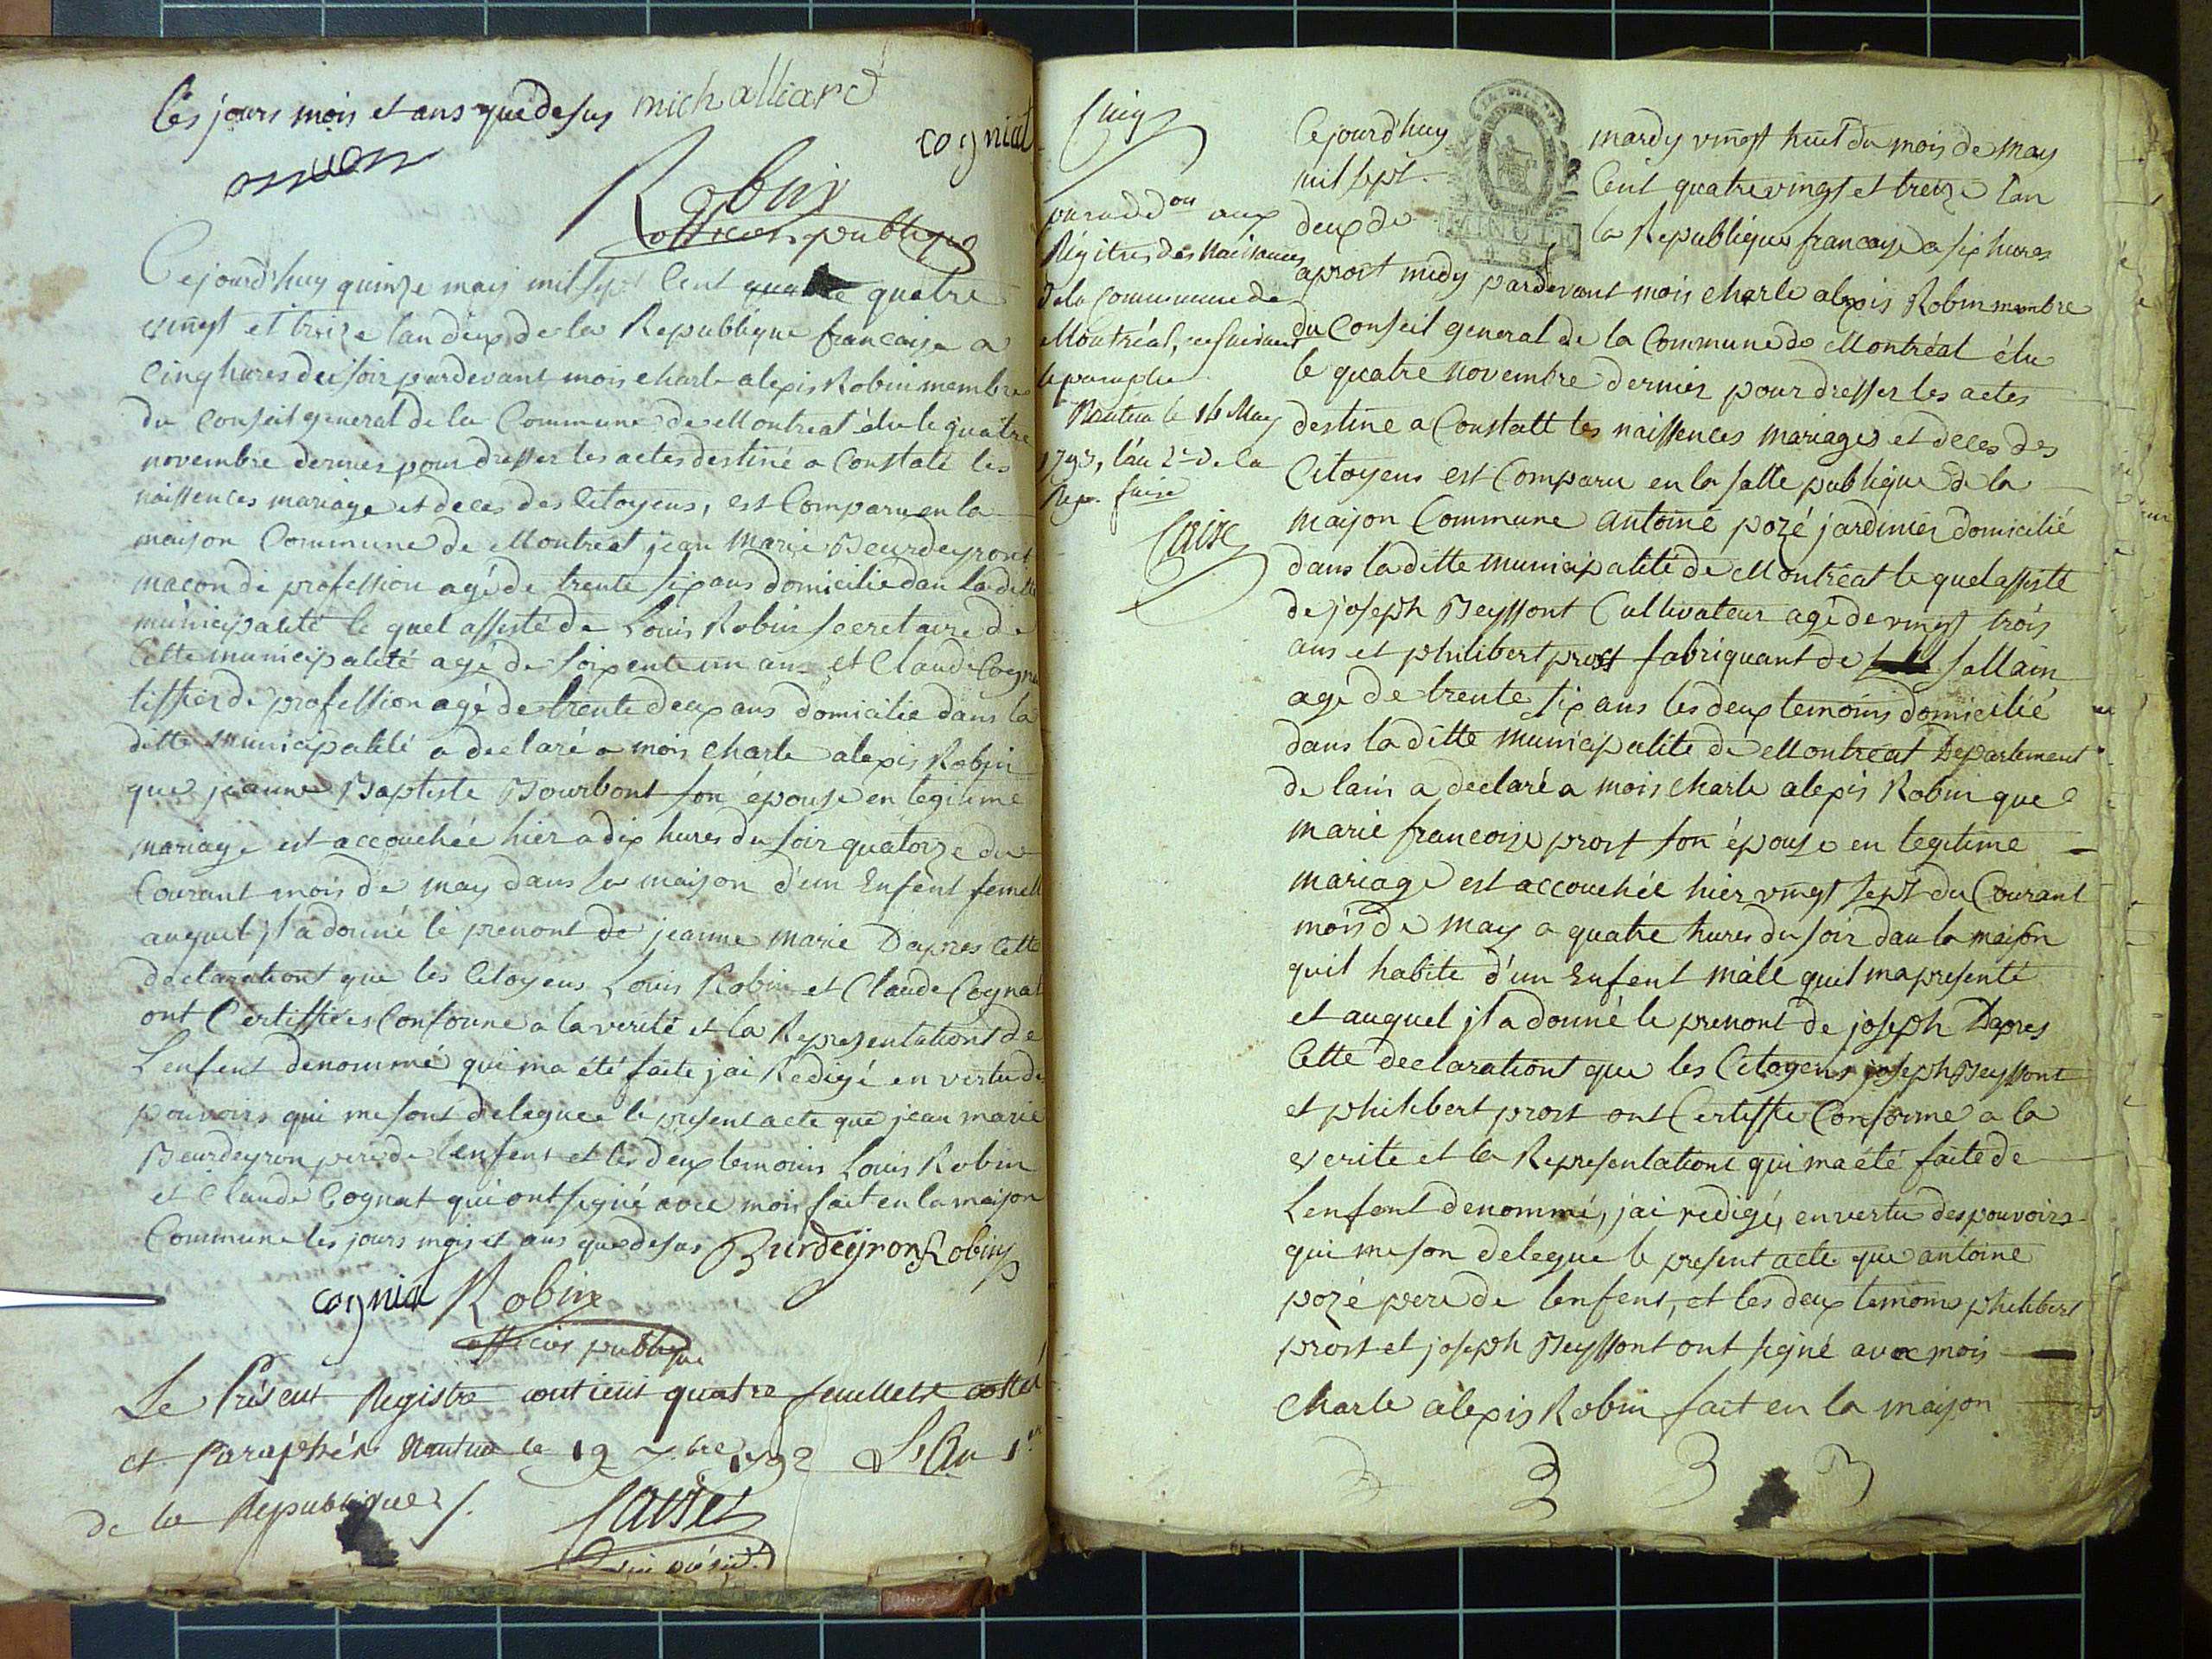 les jours mois et ans que desus michalliard
cogniat
Robin
officier publique
Cejourd'huy quinze mais mil sept Cent quatre quatre
vingt et treize lan deux de la Republique francaise a
Cinq hures du soir pardevant mois charle alexis Robin membre
du Conseil general de la Commune de Montreal élu le quatre
novembre dernier pour dresser les actes destiné a Constaté les
naissences mariage et deces des Citoyens, est Comparu en la
maison Commune de Montreal jean marie Beurdeyront
macon de profession agé de trente six ans domicilié dan la ditte
municipalité le quel assisté de Louis Robin secretaire de
Cette municipalité agé de soixente un ans et Claude Cogna
tissier de profession agé de trente deux ans domicilié dans la
ditte municipalité a declaré a mois charle alexis Robin
que jeanne Baptiste Bourbont son épouse en legitime
mariage est accouchée hier a dix hures du soir quatorze du
Courant mois de may dans la maison d'un Enfent femell
auquel jl a donné le prenont de jeanne marie Dapres Cette
declarationt que les Citoyens Louis Robin et Claude Cognat
ont Certiffiées Conforme a la verité et la Representationt de
Lenfent denommé qui ma été faite jai Redigé en vertu de
pouvoirs qui me sont deleguee le present acte que jean marie
Beurdeyron pere de lenfent et les deux temoins Louis Robin
et Claude Cognat qui ont signé avec mois fait en la maison
Commune les jours mois et ans que desus Burdeyron Robin
cognia Robin
officier publique
Le Présent Registre contient quatre feuillets cottés
et Paraphés Nantua le 19 7.bre 1792 L'An 1er
de la Republique /.
Cinq
par add.on aux
Régitres des Naissances
de la Commune de
Montréal, ne suivant
le paraphe
Nantua le 16 May
1793, l'an 2e de la
Rep. fuise
Cejourd'huy mardy vingt huit du mois de may
mil sept Cent quatre vingt et treize lan
deux de la Republique francaise a six hures
MINUTE
aprost midy pardevant mois charle alexis Robin membre
du Conseil general de la Commune de Montréal élu
le quatre novembre dernier pour dresser les actes
destine a Constatt les naissences mariages et deces des
Citoyens est Comparu en la salle publique de la
maison Commune antoine pozé jardinier domicilié
dans la ditte municipalité de Montréal le quel assisté
de joseph Beyssont Cultivateur agé de vingt trois
ans et philibert prost fabriquant de sallain
agé de trente six ans les deux temoins domicilié
dans la ditte municipalité de Montreal Departement
de lain a declaré a mois charle alexis Robin que
marie francoise prost son épouse en legitime
mariage est accouchée hier vingt sept du Courant
mois de may a quatre hures du soir dan la maison
quil habite d'un Enfent mâle quil ma presenté
et auquel jl a donné le prenont de joseph Dapres
Cette declarationt que les Citoyens joseph Beyssont
et philibert prost ont Certiffie Conforme a la
verite et la Representationt qui ma été faite de
Lenfent denommé, jai redigé, en vertu des pouvoirs
qui me son delegue le present acte que antoine
pozé pere de lenfent, et les deux temoins philibert
prost et joseph Beyssont ont signé avec mois
Charle alexis Robin fait en la maison